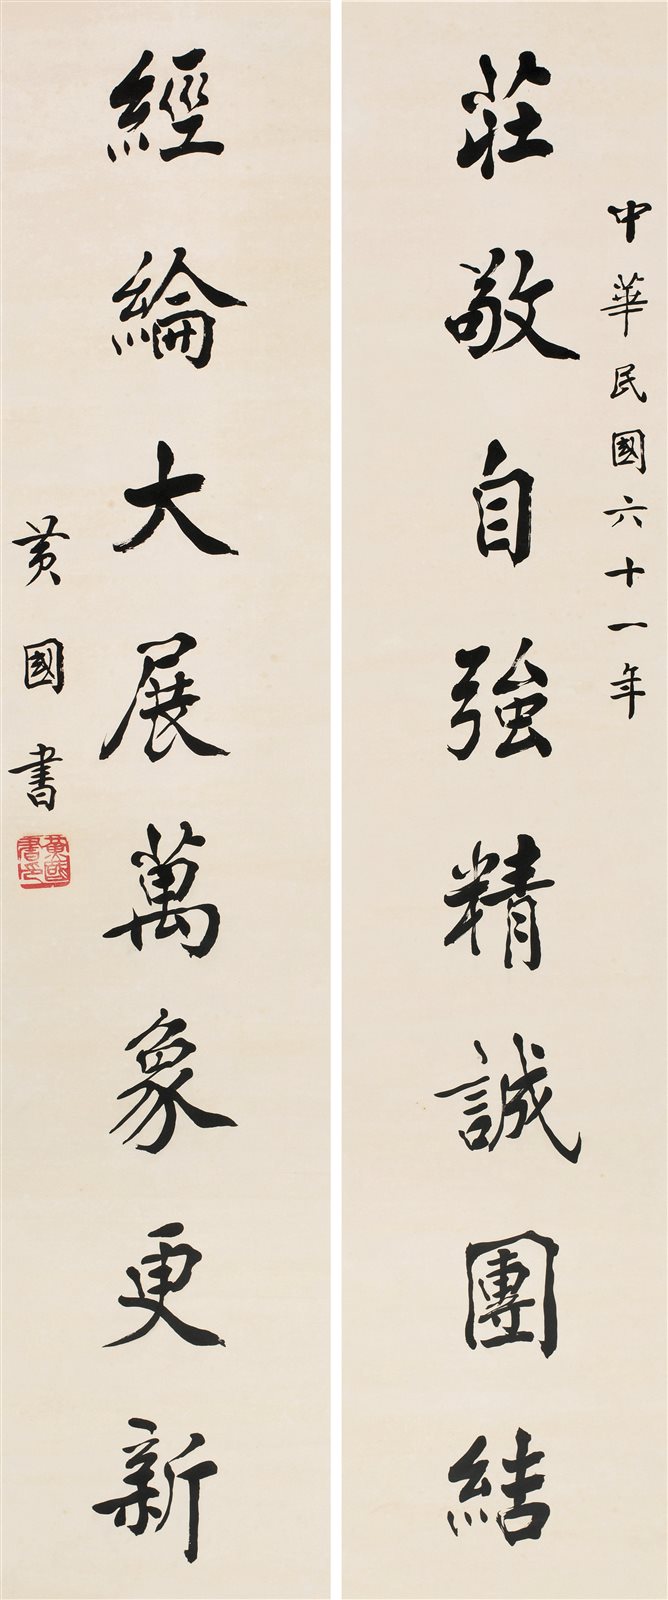 中華民國六十一年
莊敬自強精誠團結
經綸大展萬象更新
黃國書
黃國
書印